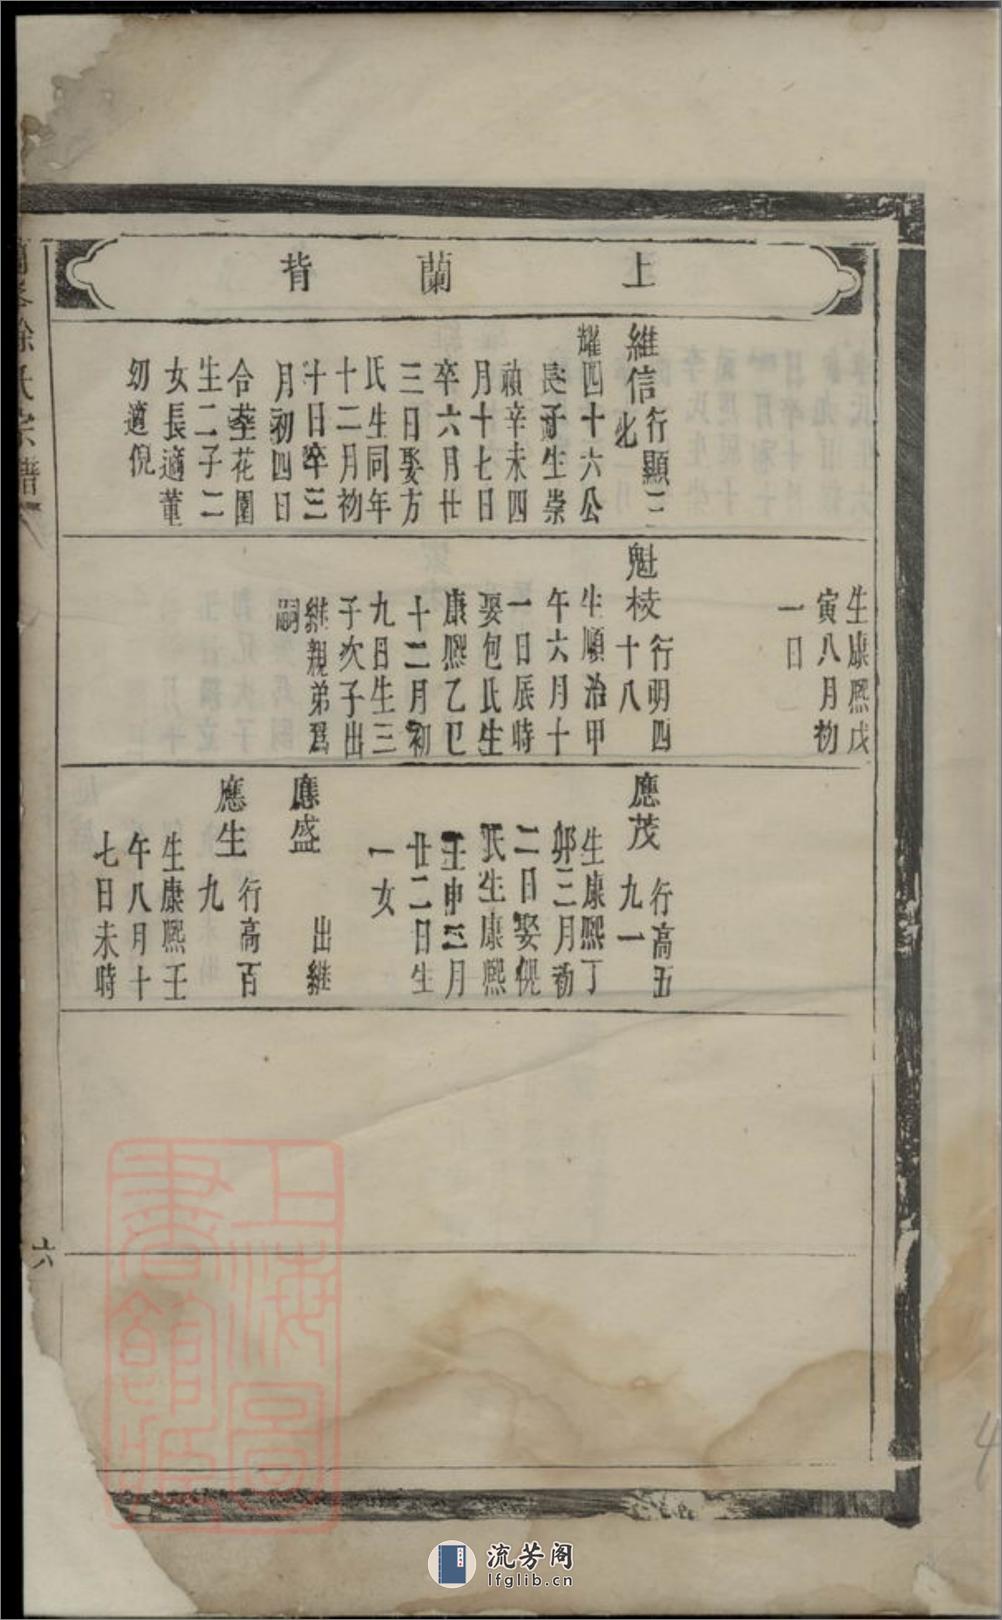 上蘭背
維信
行顯三
耀四十六公
長子生崇
禎辛未四
月十七日
卒六月廿
三日娶方
氏生同年
十二月初
十日卒三
月初四日
合塟花園
生二子二
女長適董
幼適倪
生康熙戊
寅八月初
一日
魁棱
行明四
十八
生順治甲
午六月十
一日辰時
娶包氏生
康熙乙巳
十二月初
九日生三
子次子出
継親弟爲
嗣
應茂
行高五
九一
生康熙丁
卯三月初
二日娶倪
氏生康熙
壬申三月
廿二日生
一女
應盛
出継
應生
行高百
九
生康熙壬
午八月十
七日未時
徐氏宗譜
六
上海圖
書館藏
4
流芳阁
lfglib.cn